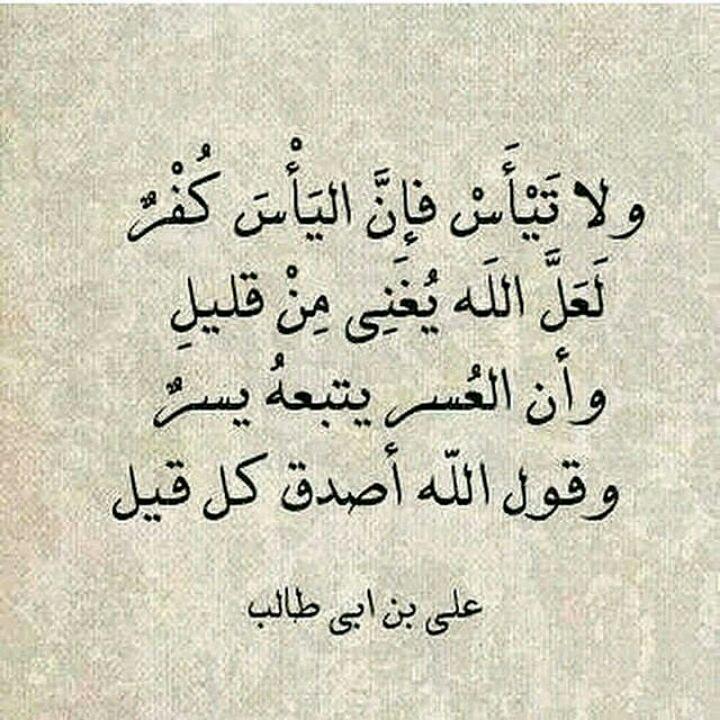 ولا تَيْأَسْ فإِنَّ اليَأْسَ كُفْرٌ
لَعَلَّ اللَه يُغَنِى مِنْ قليلِ
وأن العُسر يتبعهُ يسرٌ
وقول اللّه أصدق كل قيل
على بن ابى طالب